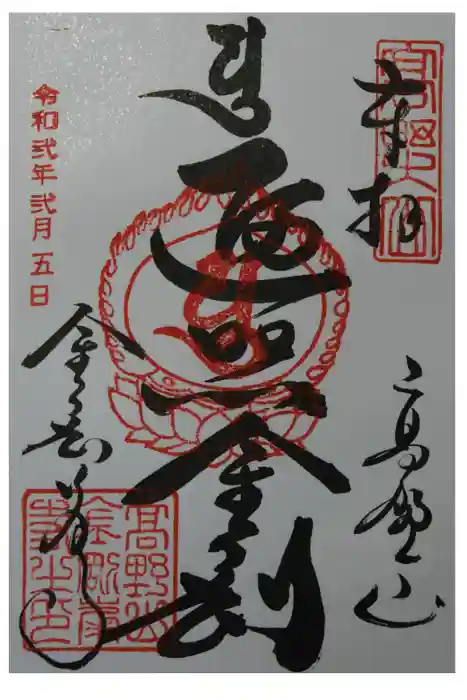 奉拝
高野山
遍照金剛
令和弐年弐月五日
金剛峯寺
高野山
金剛峯
寺之印